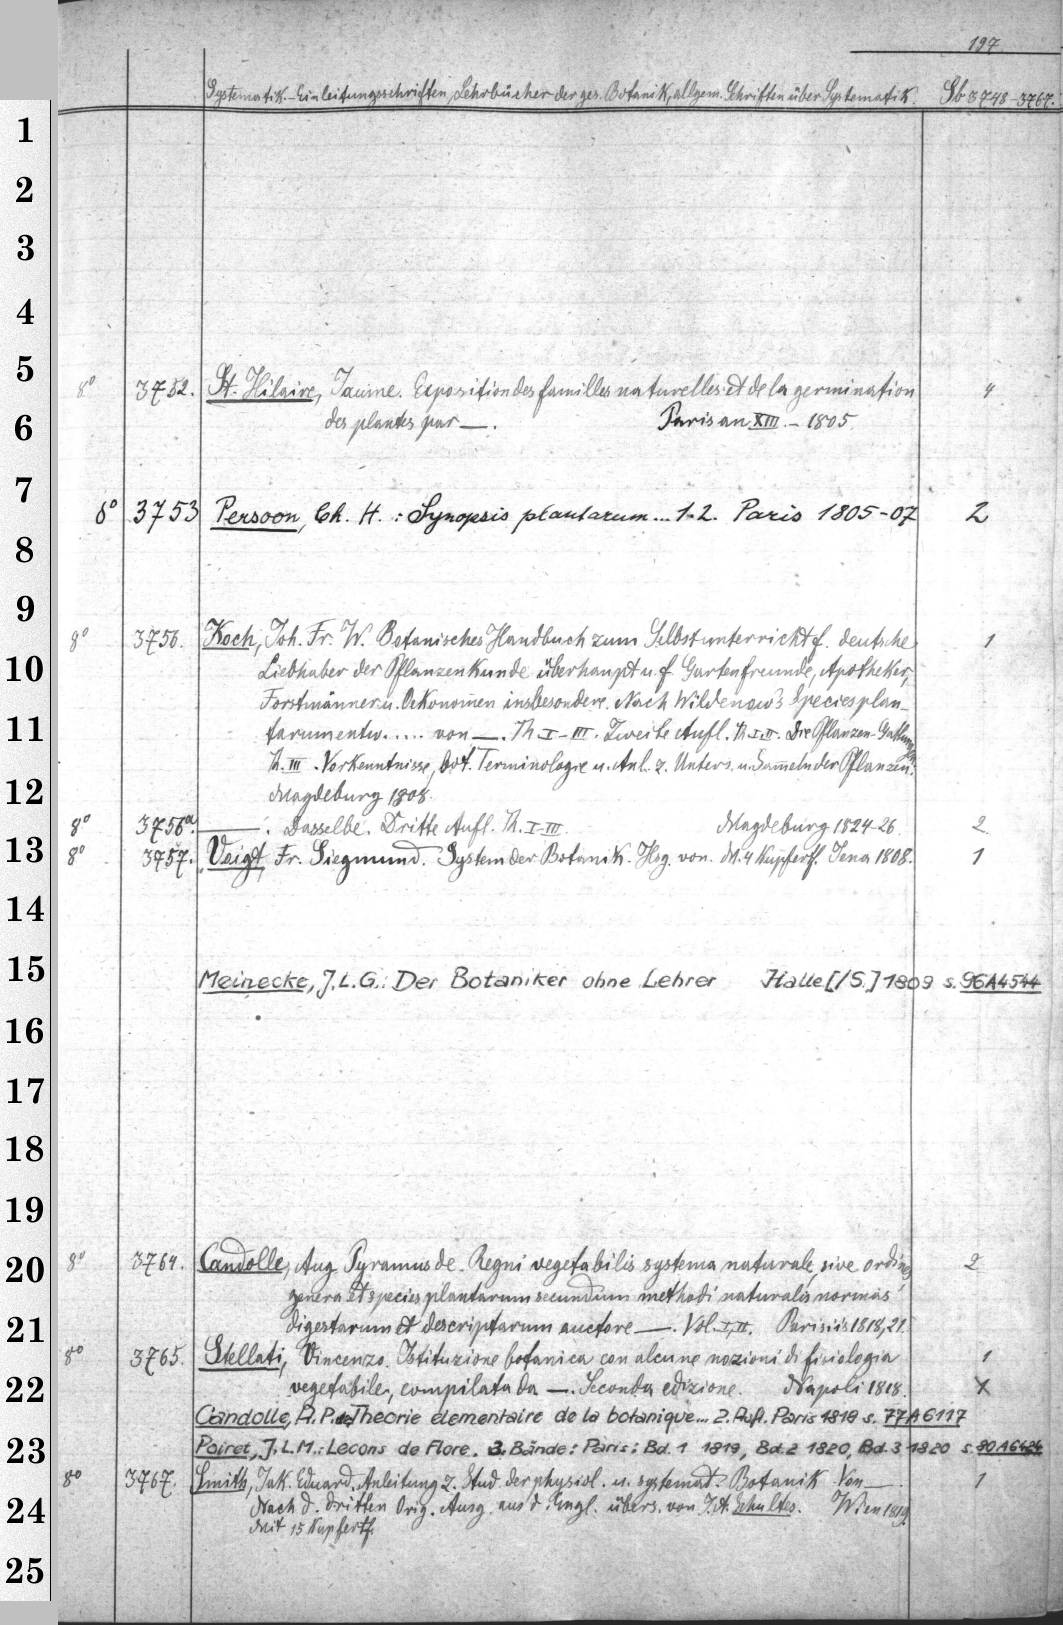 197
Systematik.-Einleitungsschriften, Lehrbücher der ges. Botanik, allgem. Schriften über Systematik. Sb 3748-3767.
1
2
3
4
5
8° 3752. St. Hilaire, Jaume. Exposition des familles naturelles et de la germination 4
6 des plantes par —. Paris an XIII. - 1805
7
8° 3753 Persoon, Ch. H.: Synopsis plantarum... 1-2. Paris 1805-07 2
8
9
8° 3756. Koch, Joh. Fr. W. Botanisches Handbuch zum Selbstunterricht f. deutsche 1
10 Liebhaber der Pflanzenkunde überhaupt u. f. Gartenfreunde, Apotheker,
Forstmänner u. Oekonomen insbesondere. Nach Wildenow's Species plan-
11 tarum entw..... von —. Th. I-III. Zweite Aufl. Th. I. II. Die Pflanzen-Gattungen
Th. III. Vorkenntnisse, bot. Terminologie u. Anl. z. Unters. u. Sammeln der Pflanzen.
12 Magdeburg 1808.
8° 3756a. —. Dasselbe. Dritte Aufl. Th. I-III. Magdeburg 1824-26. 2
13 8° 3757. Voigt, Fr. Siegmund. System der Botanik. Hsg. von. M. 4 Kupfertf. Jena 1808. 1
14
15 Meinecke, J.L.G.: Der Botaniker ohne Lehrer Halle [/S.] 1809 s. 96A4544
16
17
18
19
20 8° 3764. Candolle, Aug. Pyramus de. Regni vegetabilis systema naturale, sive ordines 2
genera et species plantarum secundum methodi naturalis normas
21 digestarum et descriptarum auctore —. Vol. I, II. Parisiis 1818, 21.
8° 3765. Stellati, Vincenzo. Istituzione botanica con alcune nozioni di fisiologia 1
22 vegetabile, compilata da —. Seconda edizione. Napoli 1818. X
Candolle, A. P. de, Theorie elementaire de la botanique... 2. Aufl. Paris 1819 s. 77A6117
23 Poiret, J.L.M.: Lecons de Flore. 3. Bände: Paris: Bd. 1 1819, Bd. 2 1820, Bd. 3 1820 s. 80A6424
8° 3767. Smith, Jak. Eduard. Anleitung z. Stud. der physiol. u. systemat. Botanik. Von —. 1
24 Nach d. dritten Orig. Ausg. aus d. Engl. übers. von J. A. Schultes. Wien 1819.
Mit 15 Kupfertf.
25